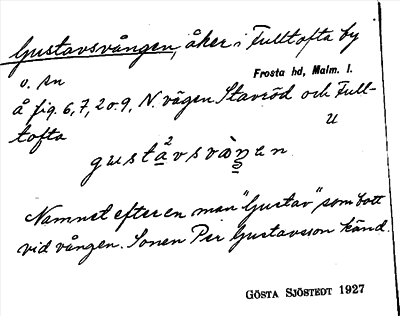 Gustavsvången, åker i Fulltofta by
o. sn
Frosta hd, Malm. l.
å fig. 6, 7, 2 o. 9, N. vägen Stavröd och Full-
tofta
u
Namnet efter en man "Gustav" som bott
vid vången. Sonen Per Gustavsson känd.
GÖSTA SJÖSTEDT 1927